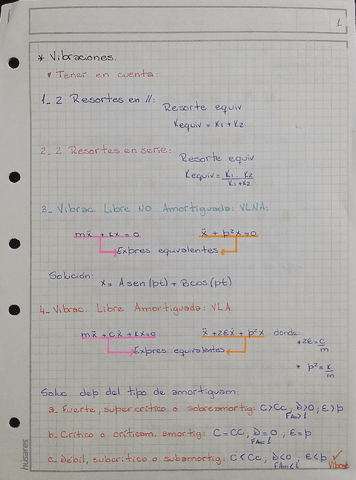 1
* Vibraciones.
• Tener en cuenta:
1_ 2 Resortes en //:
Resorte equiv
Kequiv = K1 + K2
2_ 2 Resortes en serie:
Resorte equiv
Kequiv = K1 . K2 / K1 + K2
3_ Vibrac. Libre NO Amortiguada: VLNA:
mẍ + kx = 0 ẍ + p²x = 0
Expres equivalentes
Solución:
x = A sen (pt) + B cos (pt)
4_ Vibrac. Libre Amortiguada: VLA
mẍ + cẋ + kx = 0 ẍ + 2εẋ + p²x donde
Expres equivalentes
* 2ε = c/m
* p² = k/m
Soluc. dep del tipo de amortiguam.
a. Fuerte, supercrítico o sobreamortig: C > Cc, D > 0, ε > p
FAm > 1
b. Crítico o críticam. amortig: C = Cc, D = 0, ε = p
FAm = 1
c. Débil, subcrítico o subamortig: C < Cc, D < 0, ε < p
FAm < 1
Vibrac
husares